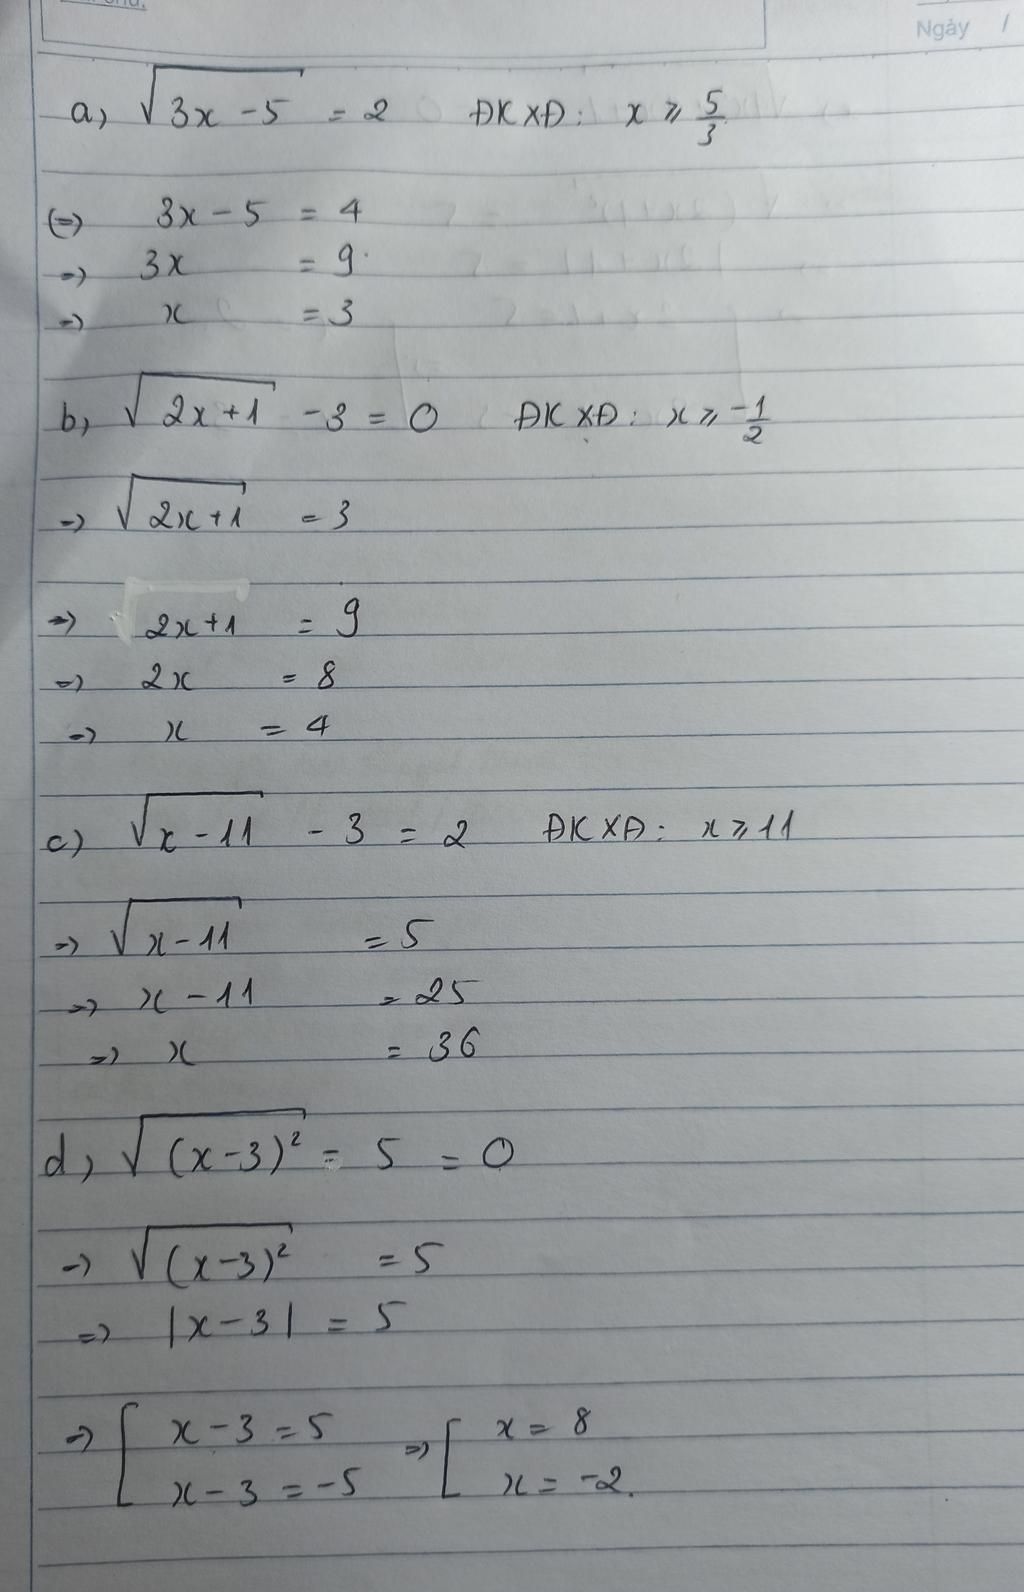 Ngày /
a, √(3x - 5) = 2 ĐKXĐ: x ⩾ 5/3
(=) 3x - 5 = 4
=) 3x = 9
=) x = 3
b, √(2x+1) - 3 = 0 ĐKXĐ: x ⩾ -1/2
=) √(2x+1) = 3
=) 2x+1 = 9
=) 2x = 8
=) x = 4
c) √(x - 11) - 3 = 2 ĐKXĐ: x ⩾ 11
=) √(x - 11) = 5
=) x - 11 = 25
=) x = 36
d, √((x - 3)²) = 5 = 0
=) √((x - 3)²) = 5
=) |x - 3| = 5
=) [ x - 3 = 5 =) [ x = 8
x - 3 = -5 x = -2.